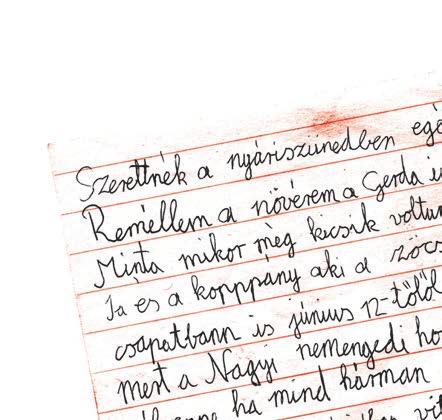 Szerettnék a nyáriszünedben egé
Reméllem a növérem a Gerda is
Minta mikor még kicsik voltun
Ja és a korppány aki a szöcs
csapatbann is június 12-től
mert a Nagyi nemengedi ho
ha mind hárman